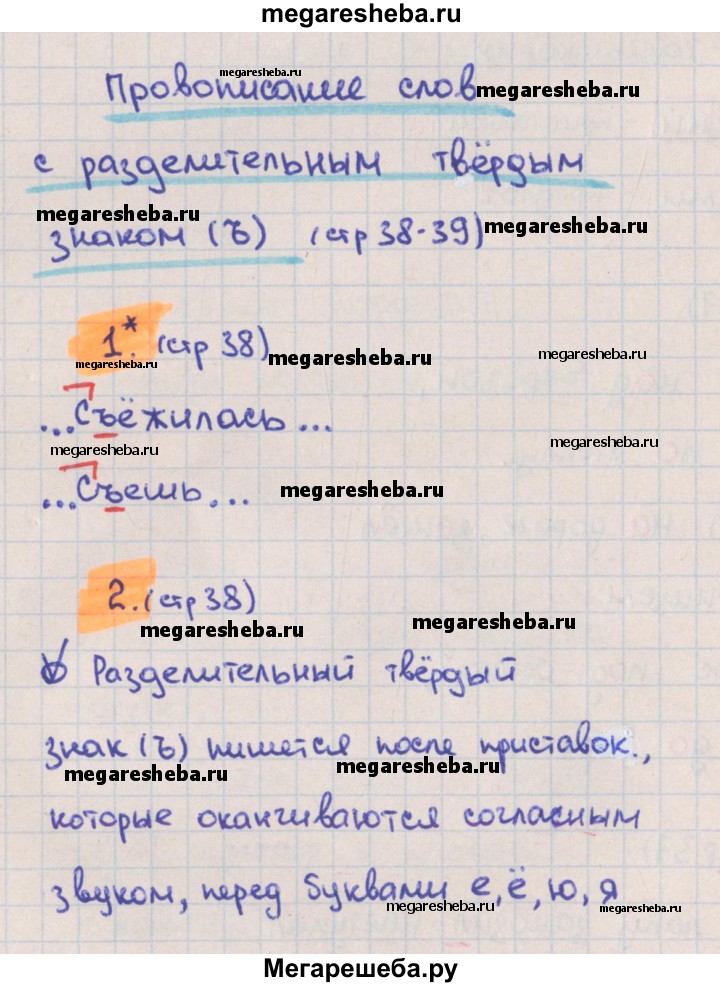 megaresheba.ru
megaresheba.ru
Провописание слов megaresheba.ru
с разделительным твёрдым
megaresheba.ru megaresheba.ru
знаком (ъ) (стр 38-39)
1.* (стр 38) megaresheba.ru megaresheba.ru
megaresheba.ru
...Съёжилась...
megaresheba.ru megaresheba.ru
...Съешь... megaresheba.ru
2. (стр 38)
megaresheba.ru megaresheba.ru
Разделительный твёрдый
знак (ъ) пишется после приставок.,
megaresheba.ru megaresheba.ru
которые оканчиваются согласным
звуком, перед буквами е, ё, ю, я
megaresheba.ru megaresheba.ru
Мегарешеба.ру